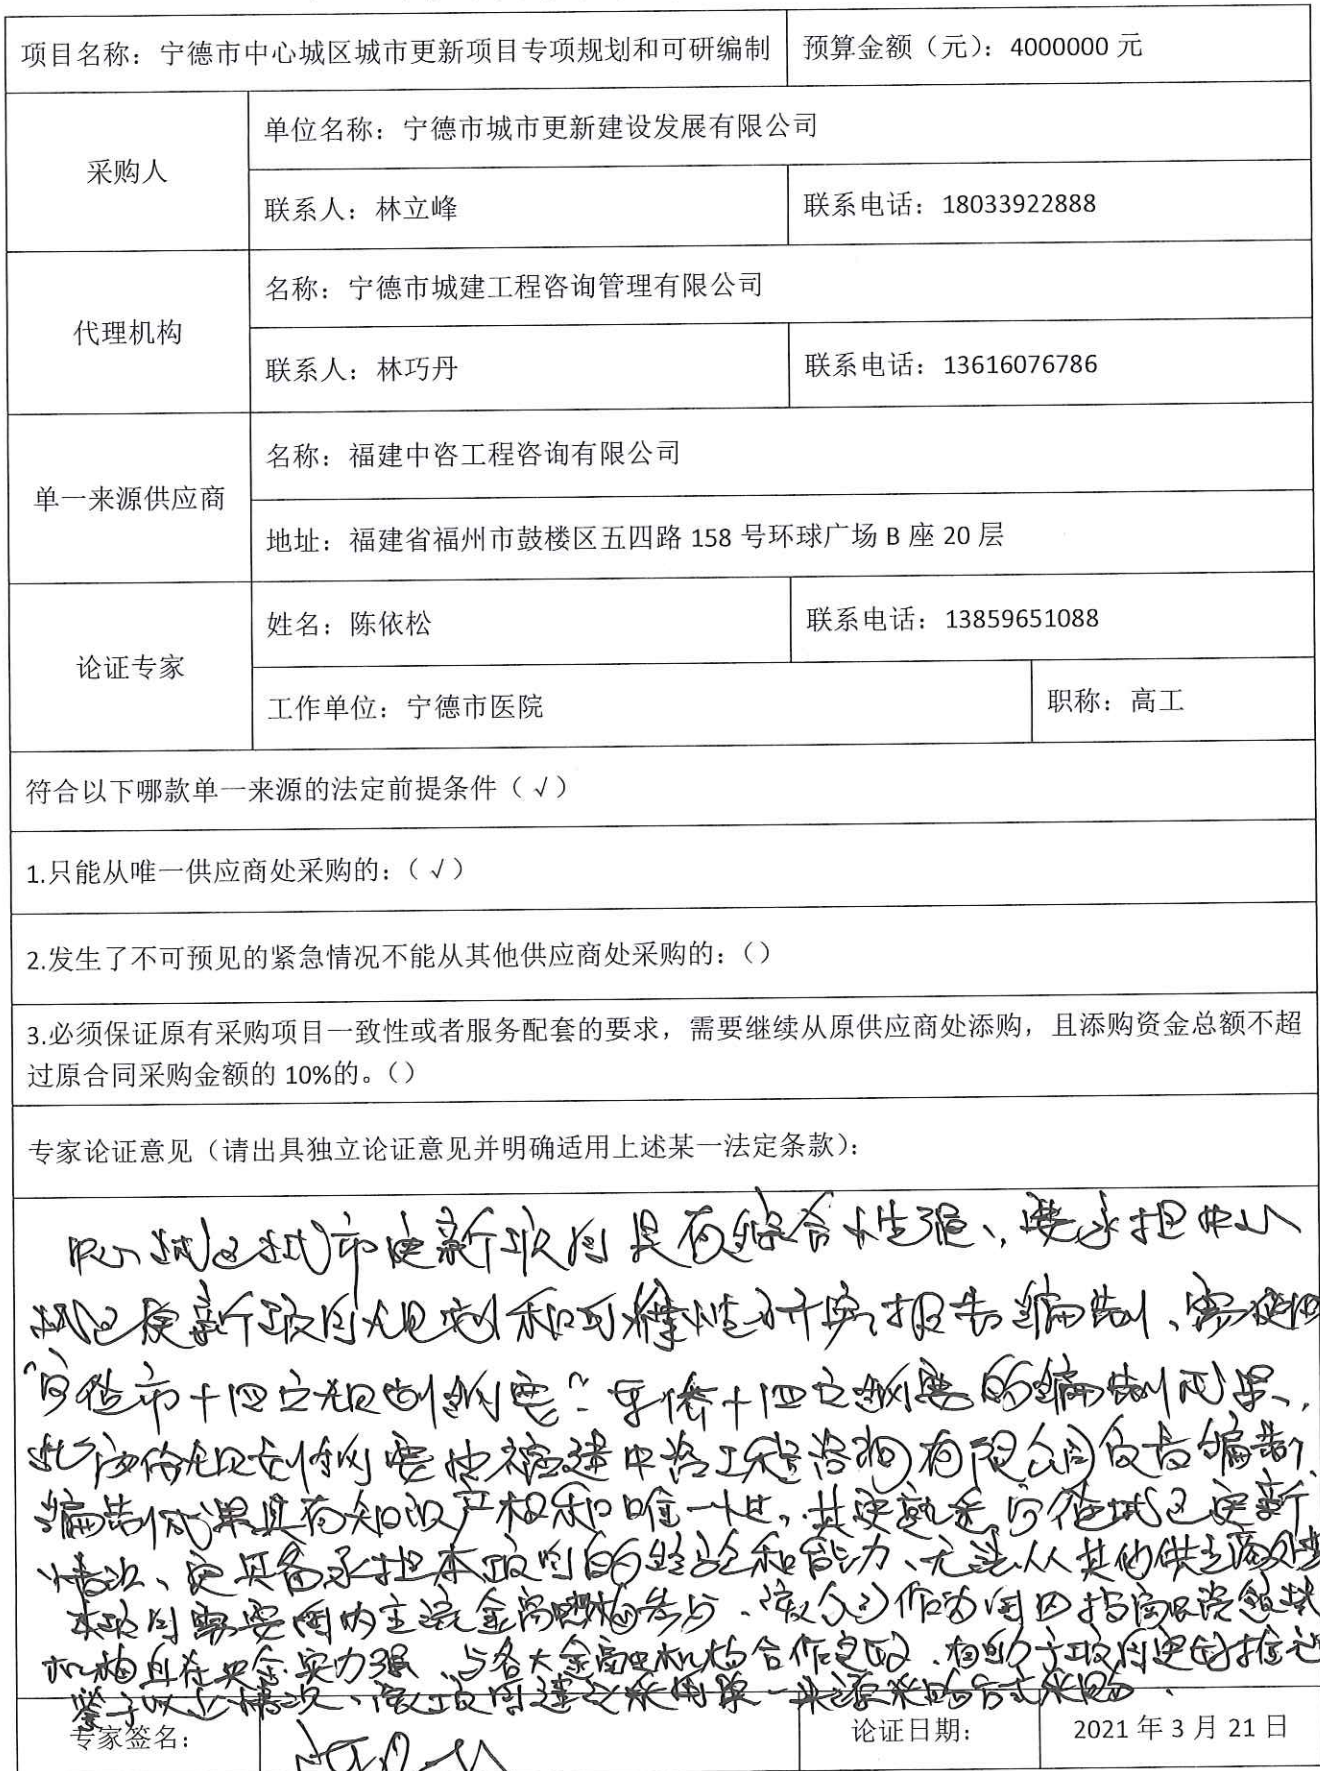 项目名称：宁德市中心城区城市更新项目专项规划和可研编制
预算金额（元）：4000000 元
采购人
单位名称：宁德市城市更新建设发展有限公司
联系人：林立峰
联系电话：18033922888
代理机构
名称：宁德市城建工程咨询管理有限公司
联系人：林巧丹
联系电话：13616076786
单一来源供应商
名称：福建中咨工程咨询有限公司
地址：福建省福州市鼓楼区五四路 158 号环球广场 B 座 20 层
论证专家
姓名：陈依松
联系电话：13859651088
工作单位：宁德市医院
职称：高工
符合以下哪款单一来源的法定前提条件（√）
1.只能从唯一供应商处采购的：（√）
2.发生了不可预见的紧急情况不能从其他供应商处采购的：（）
3.必须保证原有采购项目一致性或者服务配套的要求，需要继续从原供应商处添购，且添购资金总额不超
过原合同采购金额的 10%的。（）
专家论证意见（请出具独立论证意见并明确适用上述某一法定条款）：
中心城区城市更新项目具有综合性强、要承担中心
城区更新项目规划和可研性研究报告编制、需使用
宁德市十四五规划纲要 十四五纲要的编制成果、
规划纲要由福建中咨工程咨询有限公司负责编制
编制成果具有知识产权和唯一性、其更熟悉宁德城区更新
情况、更具备承担本项目的经验和能力、无法从其他供应商处
本项目需要国内主流金商机构参与、该公司作为国
机构且在 实力强、与各大金商机构合作 有助于项目更好推
鉴于以上情况、该项目建议采用单一来源采购方式采购、
专家签名：
论证日期：
2021 年 3 月 21 日